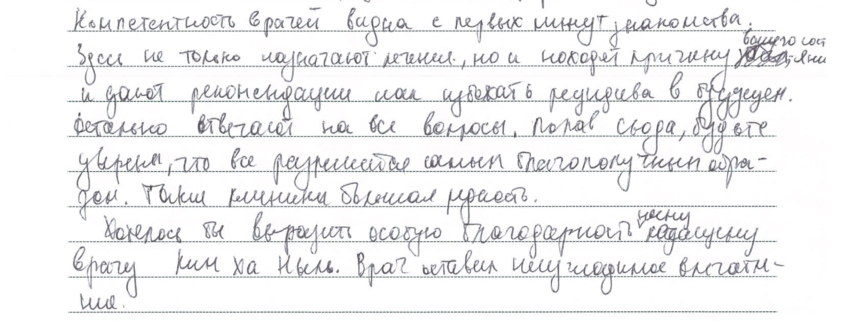 Компетентность врачей видна с первых минут знакомства.
Здесь не только назначают лечение, но и находят причину вашего состояния
и дают рекомендации как избежать рецидива в будущем.
Детально отвечают на все вопросы. Попав сюда, будьте
уверены, что все разрешится самым благополучным обра-
зом. Такие клиники большая редкость.
Хотелось бы выразить особую благодарность нашему
врачу Ким Ха Ныль. Врач оставил неизгладимое впечатле-
ние.